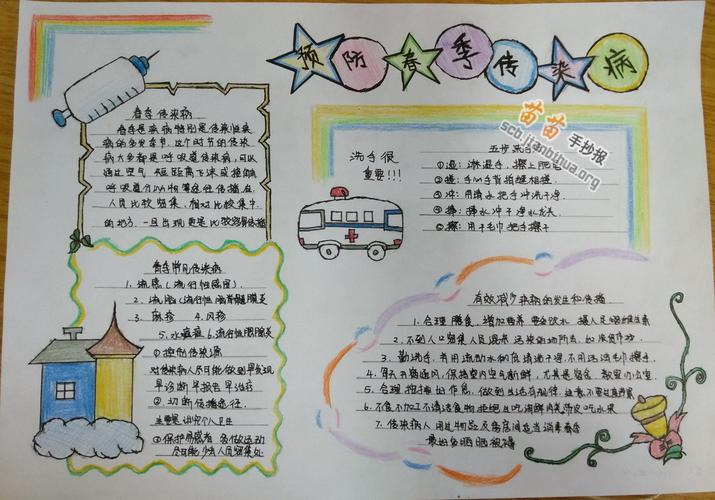 预防春季传染病
苗苗手抄报
scb.jianbihua.org
春季传染病
春季是疾病特别是传染性疾
病的多发季节,这个时节的传染
病大多都是呼吸道传染病,可以
通过空气 短距离飞沫或接触
呼吸道分泌物等途径传播,在
人员比较密集,相对比较集中
的地方,一旦出现更是比较容易传播
洗手很
重要!!!
五步洗手
①湿:淋湿手,擦上肥皂
②搓:手心手背指缝相搓
③冲:用清水把手冲洗干净
④捧:捧水冲干净水龙头
⑤擦:用干毛巾把手擦干
春季常见传染病
1.流感(流行性感冒)
2.流脑(流行性脑脊髓膜炎
3.麻疹 4.风疹
5.水痘 6.流行性腮腺炎
①控制传染源
对传染病人尽可能做到早发现
早诊断早报告早治疗
②切断传播途径
主要是讲究个人卫生
③保护易感者 各做运动
尽可能少去人员密集处
有效减少疾病的发生和传播
1.合理膳食,增加营养 要多饮水 摄入足够维生素
2.不到人口密集 人员混杂 污染的场所去 如农贸市场
3.勤洗手,并用流动水彻底清洗干净,不用污浊毛巾擦手
4.每天开窗通风,保持室内空气新鲜,尤其是宿舍 教室 办公室
5.合理安排好作息,做到生活有规律,注意不要过度疲劳
6.不食不加工不清洁食物 拒绝生吃海鲜肉类带皮吃水果
7.传染病人用过物品及房间适当消毒